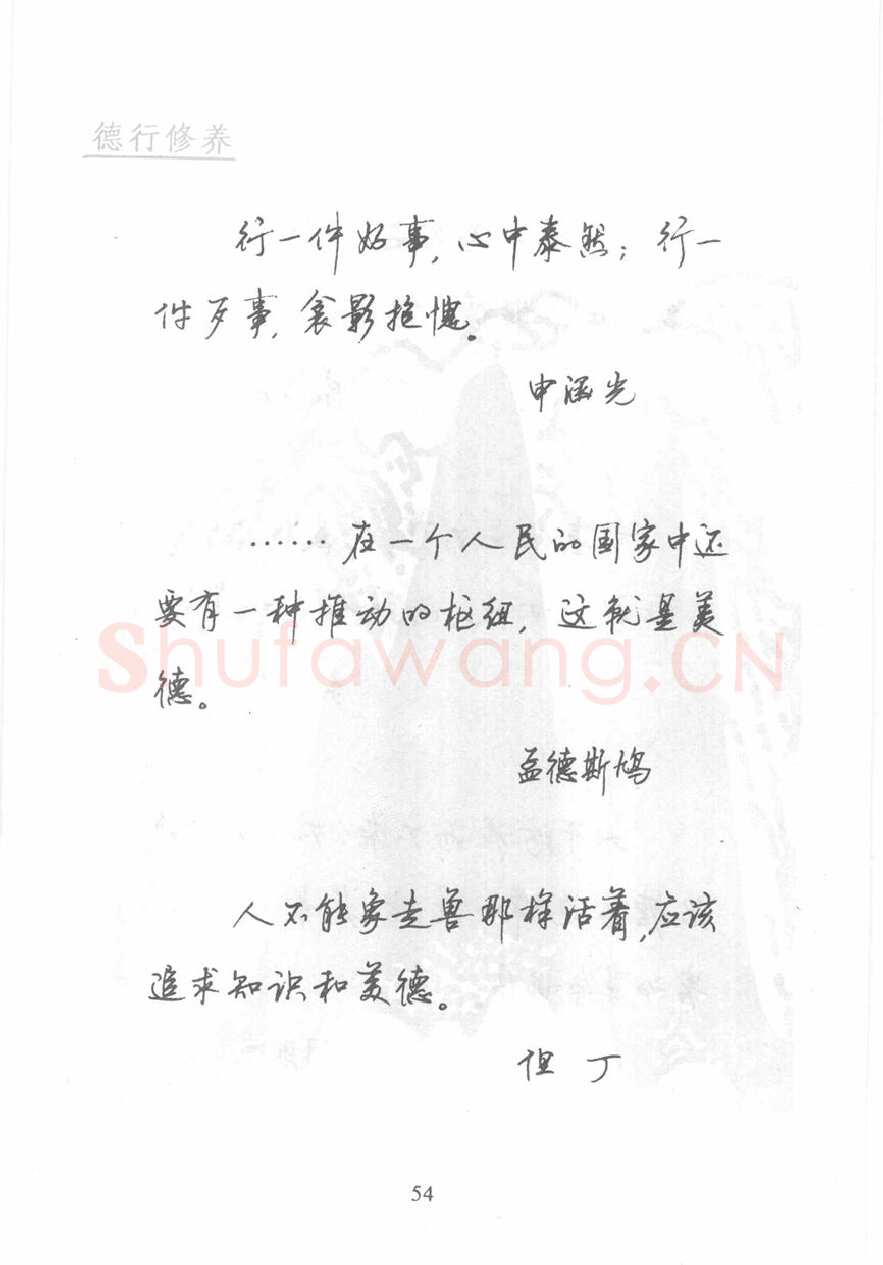 德行修养
行一件好事,心中泰然;行一
件歹事,衾影抱愧。
申涵光
……在一个人民的国家中还
要有一种推动的枢纽,这就是美
德。
孟德斯鸠
人不能象走兽那样活着,应该
追求知识和美德。
但丁
54
Shufawang.CN